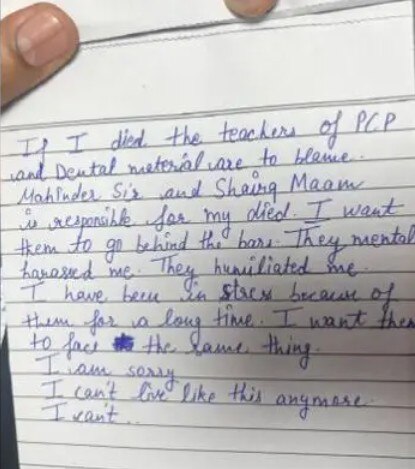 If I died the teachers of PCP
and Dental material are to blame.
Mahinder Sir and Shairg Maam
is responsible for my died. I want
them to go behind the bars. They mental
harassed me. They humiliated me.
I have been in stress because of
them for a long time. I want them
to face the same thing.
I am sorry
I can't live like this anymore.
I can't..